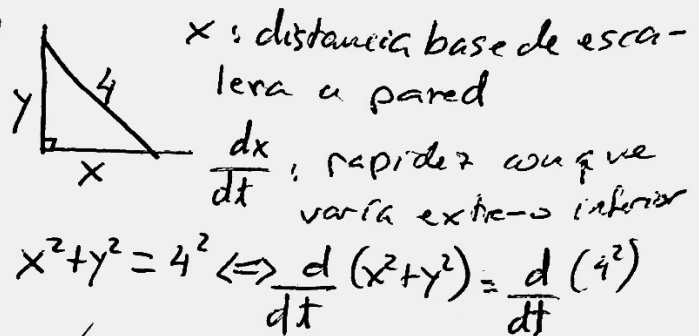 x : distancia base de esca-
lera a pared
y
4
x
dx/dt : rapidez con que
varía extremo inferior
x² + y² = 4² <=> d/dt (x² + y²) = d/dt (4²)